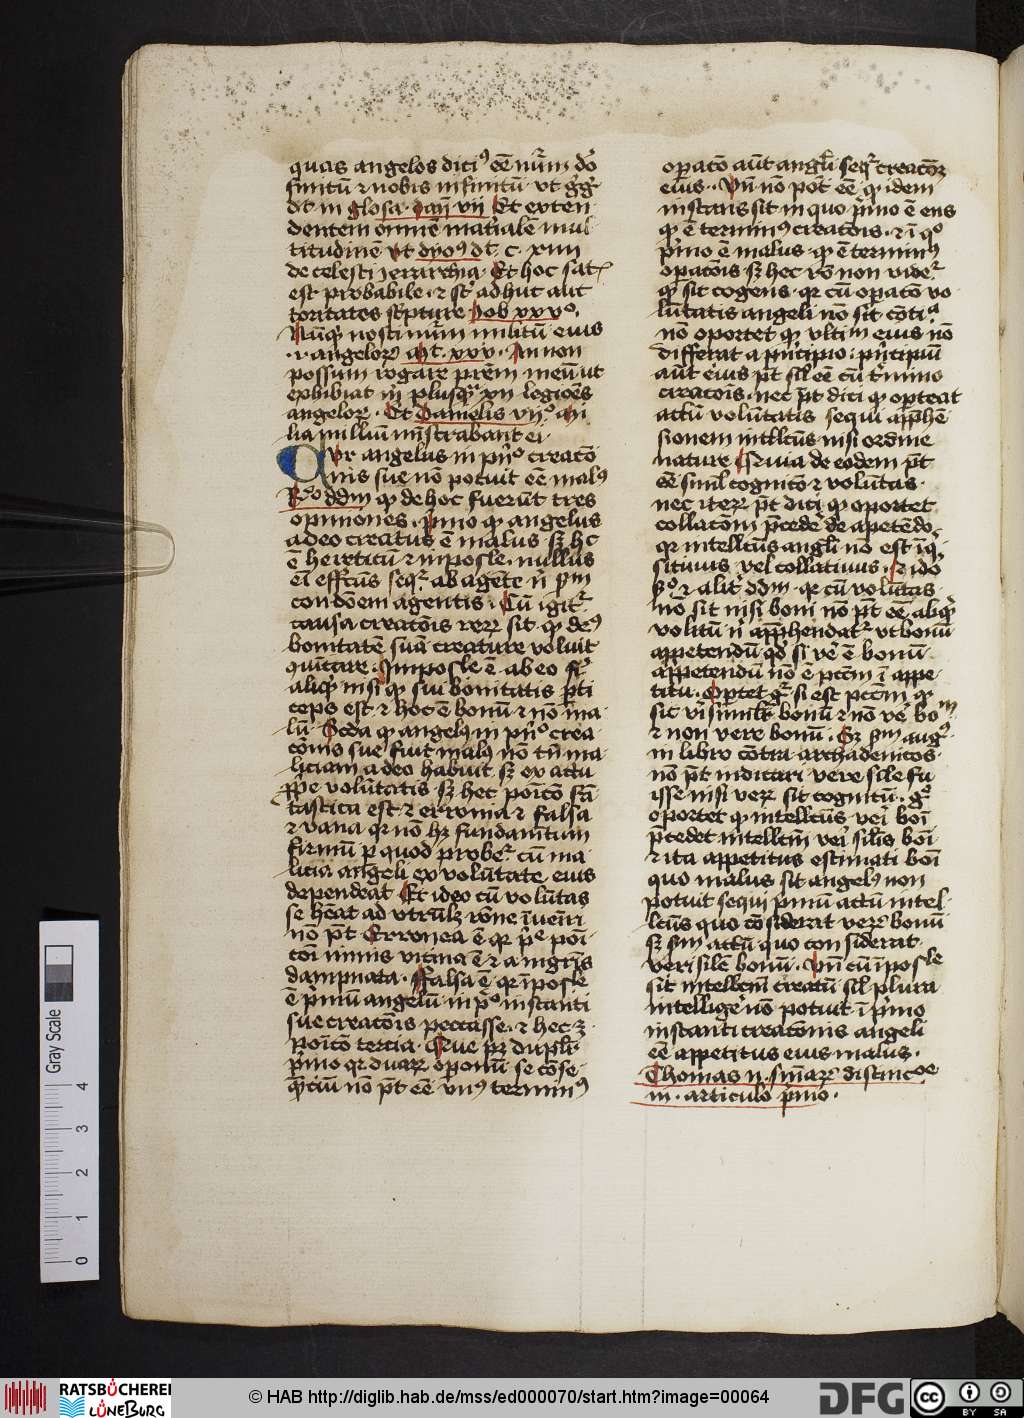 quas angelos dici⁹ eē nūm dō
finitū ⁊ nobis infinitū vt gͦgͬ
dt in glosa dan vii Et exten
dentem omnē mat͛ialē mul
titudinē vt dyoⁱ⁹ dt c xiiii
de celesti ierarchia Et hoc sat
est probabile ⁊ st͛ adhuc auc
toritates sc͛pture Job xxvͦ
Nūq͛ nosti nūm militū eius
i angeloꝝ Mt xxv An non
possum rogare prēm meū ut
exhibiat m͛ plusq͛ xii legiōes
angeloꝝ Et Danielis viiͦ Mi
lia milliū mīstrabant ei
Vtr angelus in pn͛ͦ creatō
nis sue nō potuit eē malꝰ
Rͦ ddm ꝙ de hoc fuerūt tres
opiniones p͛mo ꝙ angelus
a deo creatus ē malus sꝫ hͨ
ē hereticū ⁊ imposle nullus
eī effc̄us seqr͛ ab agēte nͥ ẜm
condōem agentis Cū igit͛
causa creatōis reꝝ sit ꝙ deꝰ
bonitatē suā creature voluit
 Imposle ē ab eo f͛
aliqͥ nisi ꝙ sui bonitatis p͛ti
ceps est ⁊ hoc ē bonū ⁊ nō ma
lū Secda ꝙ angelꝰ in pn͛ͦ crea
cōnis sue fuit malꝰ nō tn̄ ma
liciam a deo habuit sꝫ ex actu
ꝓpe volūtatis sꝫ hec poīcō fā
tastica est ⁊ erronia ⁊ falsa
⁊ vana qꝛ nō hꝫ fundamētum
firmū ꝑ quod probet͛ cū ma
licia angeli ex volūtate eius
dependeat Et ideo cū volūtas
se hēat ad vtrūlꝫ rōne īueiri
nō pt Erronea ē qꝛ p͛e poī
coī nimis vicina ē ⁊ a mgr͛is
dampnata Falsa ē qꝛ īposle
ē p͛mū angelū in pͦ instanti
sue creacōis peccasse ⁊ hec ꝫ
poicō tercia pꝫ dupli
p͛mo qꝛ duaꝝ oponū se cōse
q͛ciū nō pt eē vnꝰ terminꝰ
opatō aūt angl͛i seqr͛ creacōꝫ
eius Vn̄ nō pot eē ꝙ idem
instans sit in quo p͛mo ē ens
ꝙ ē terminꝰ creacōis ⁊ ī qͦ
p͛mo ē malus ꝙ ē terminꝰ
opacōis sꝫ hec rō non videt͛
ꝙ sit cogens qꝛ cū opatō vo
lūtatis angeli nō sit cōtiª
nō oportet ꝙ vltim eius nō
differat a p͛ncipio p͛ncipiū
aūt eius pt sil eē cū t͛mino
creacōis nec pt dici ꝙ oporteat
actū volūtatis sequi apphē
sionem intl̄cūs nisi ordine
nature quia de eodem pt
eē simul cognitō ⁊ volūtas
nec iterꝝ pt dici ꝙ oportet
collacōm p͛cedē de apetēdo
qꝛ intellcūs angl͛i nō est īqͥ
situus vel collatiuus ⁊ ido
⁊ alit͛ ddm qꝛ cū volūtas
nō sit nisi boni nō pt eē aliqͥ
volitū nͥ apphendat͛ vt bonū
appetendū qd si vē ē bonū
appetendū nō ē pctm ī appe
titu Oportet gͦ si est pctm ꝙ
sit veri silit͛ bonū ⁊ nō ve boᵐ
⁊ non vere bonū Sꝫ ẜm augͬ
in libro cōtra archademicos
nō pt iudicari vere sile fu
isse nisi veꝝ sit cognitū gͦ
oportet ꝙ intellcūs vei boī
p͛cedet intellcm vei silis boī
⁊ ita appetitus estimati boī
quo malus sit angelꝰ non
potuit sequi p͛mū actū intel
lcūs quo cōsiderat veꝝ bonū
sꝫ ẜm actū quo considerat
veri silē bonū Vn̄ cū īposle
sit intellcm creatū sil plura
intelligē nō potuit ī p͛mo
instanti creacōnis angeli
eē appetitus eius malus
Thomas ii smaꝝ distincᵒᵉ
iii articulo p͛mo
Gray Scale
0 1 2 3 4
RATSBÜCHEREI LÜNEBURG
© HAB http://diglib.hab.de/mss/ed000070/start.htm?image=00064
DFG
cc BY SA